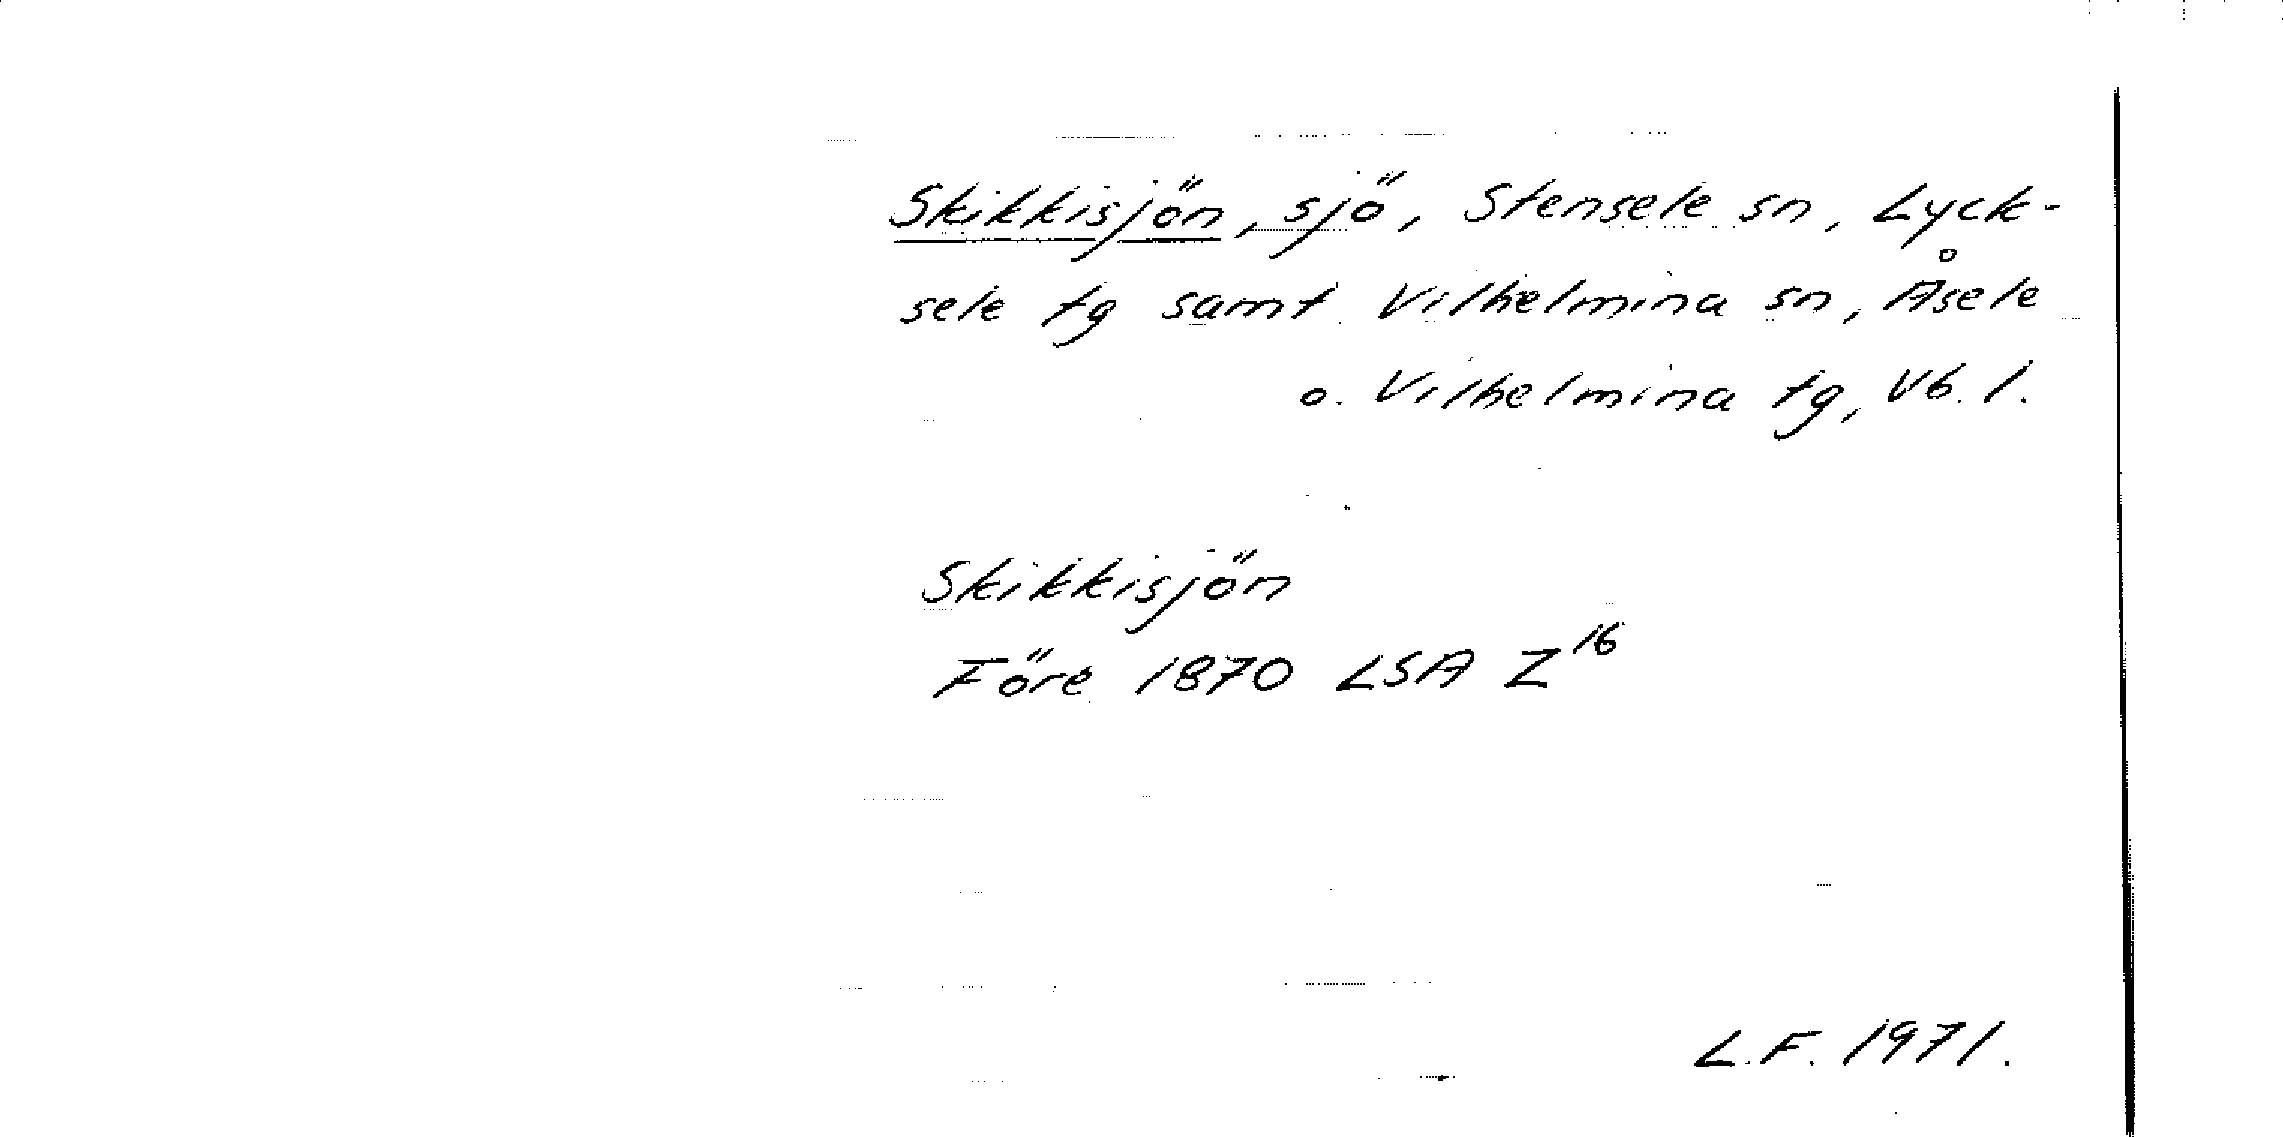 Skikkisjön, sjö, Stensele sn, Lyck-
sele tg samt Vilhelmina sn, Åsele
o. Vilhelmina tg, Vb. l.
Skikkisjön
Före 1870 LSA Z16
L.F. 1971.